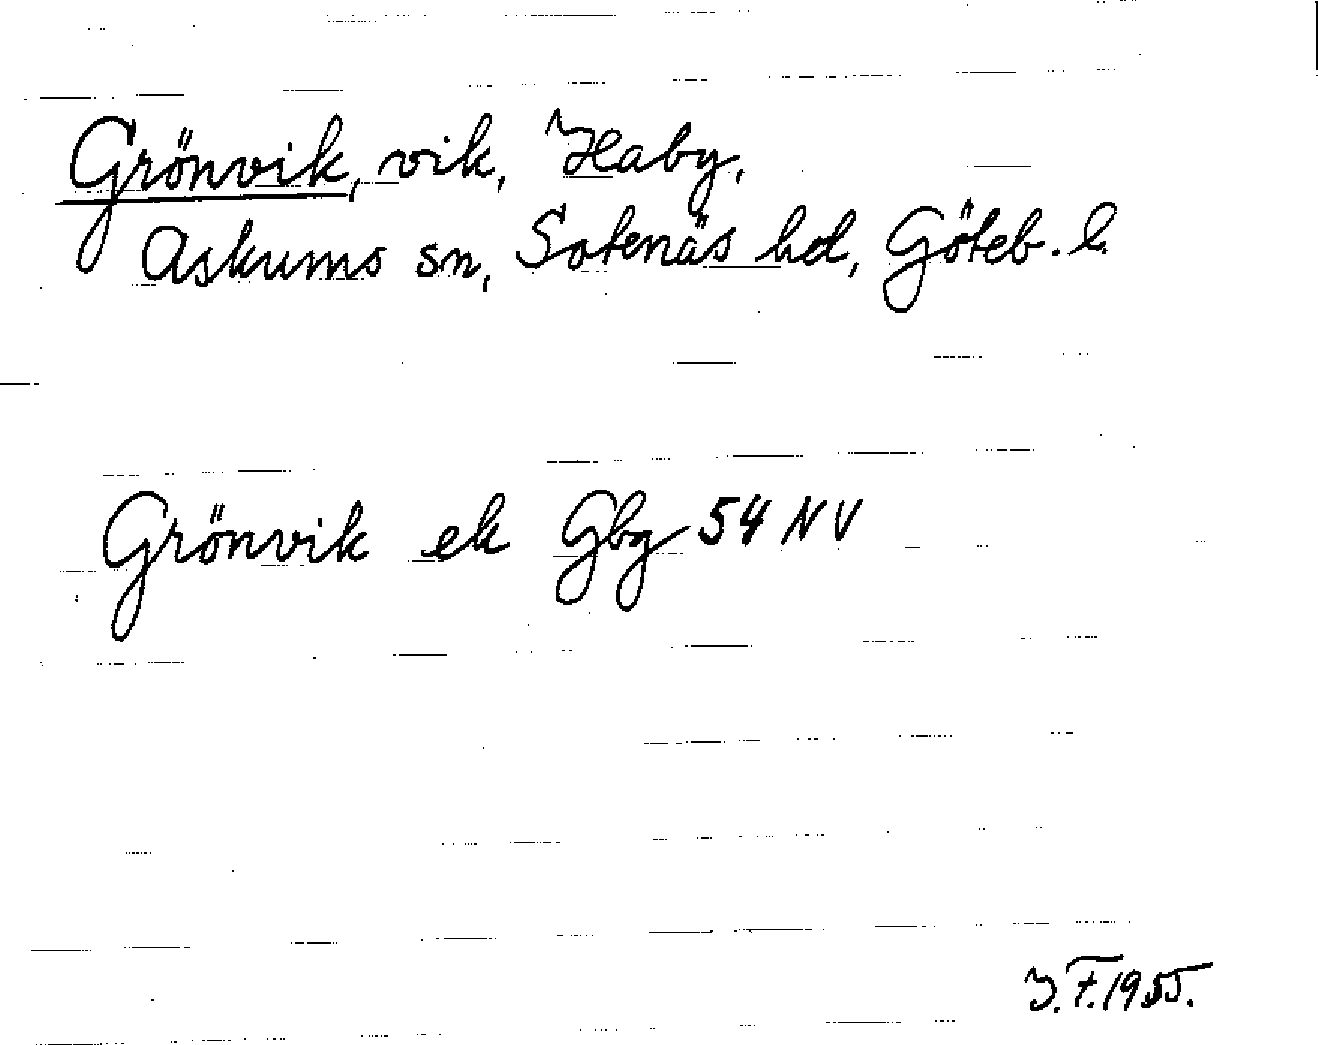 Grönvik, vik, Haby,
Askums sn, Sotenäs hd, Göteb. l.
Grönvik ek Gbg 54 NV
J.F. 1955.